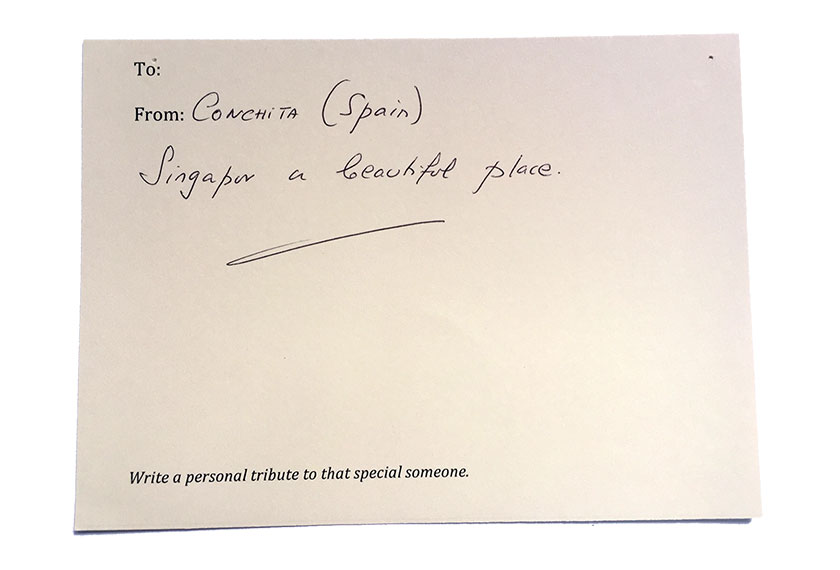 To:
From: CONCHITA (Spain)
Singapur a beautiful place.
Write a personal tribute to that special someone.